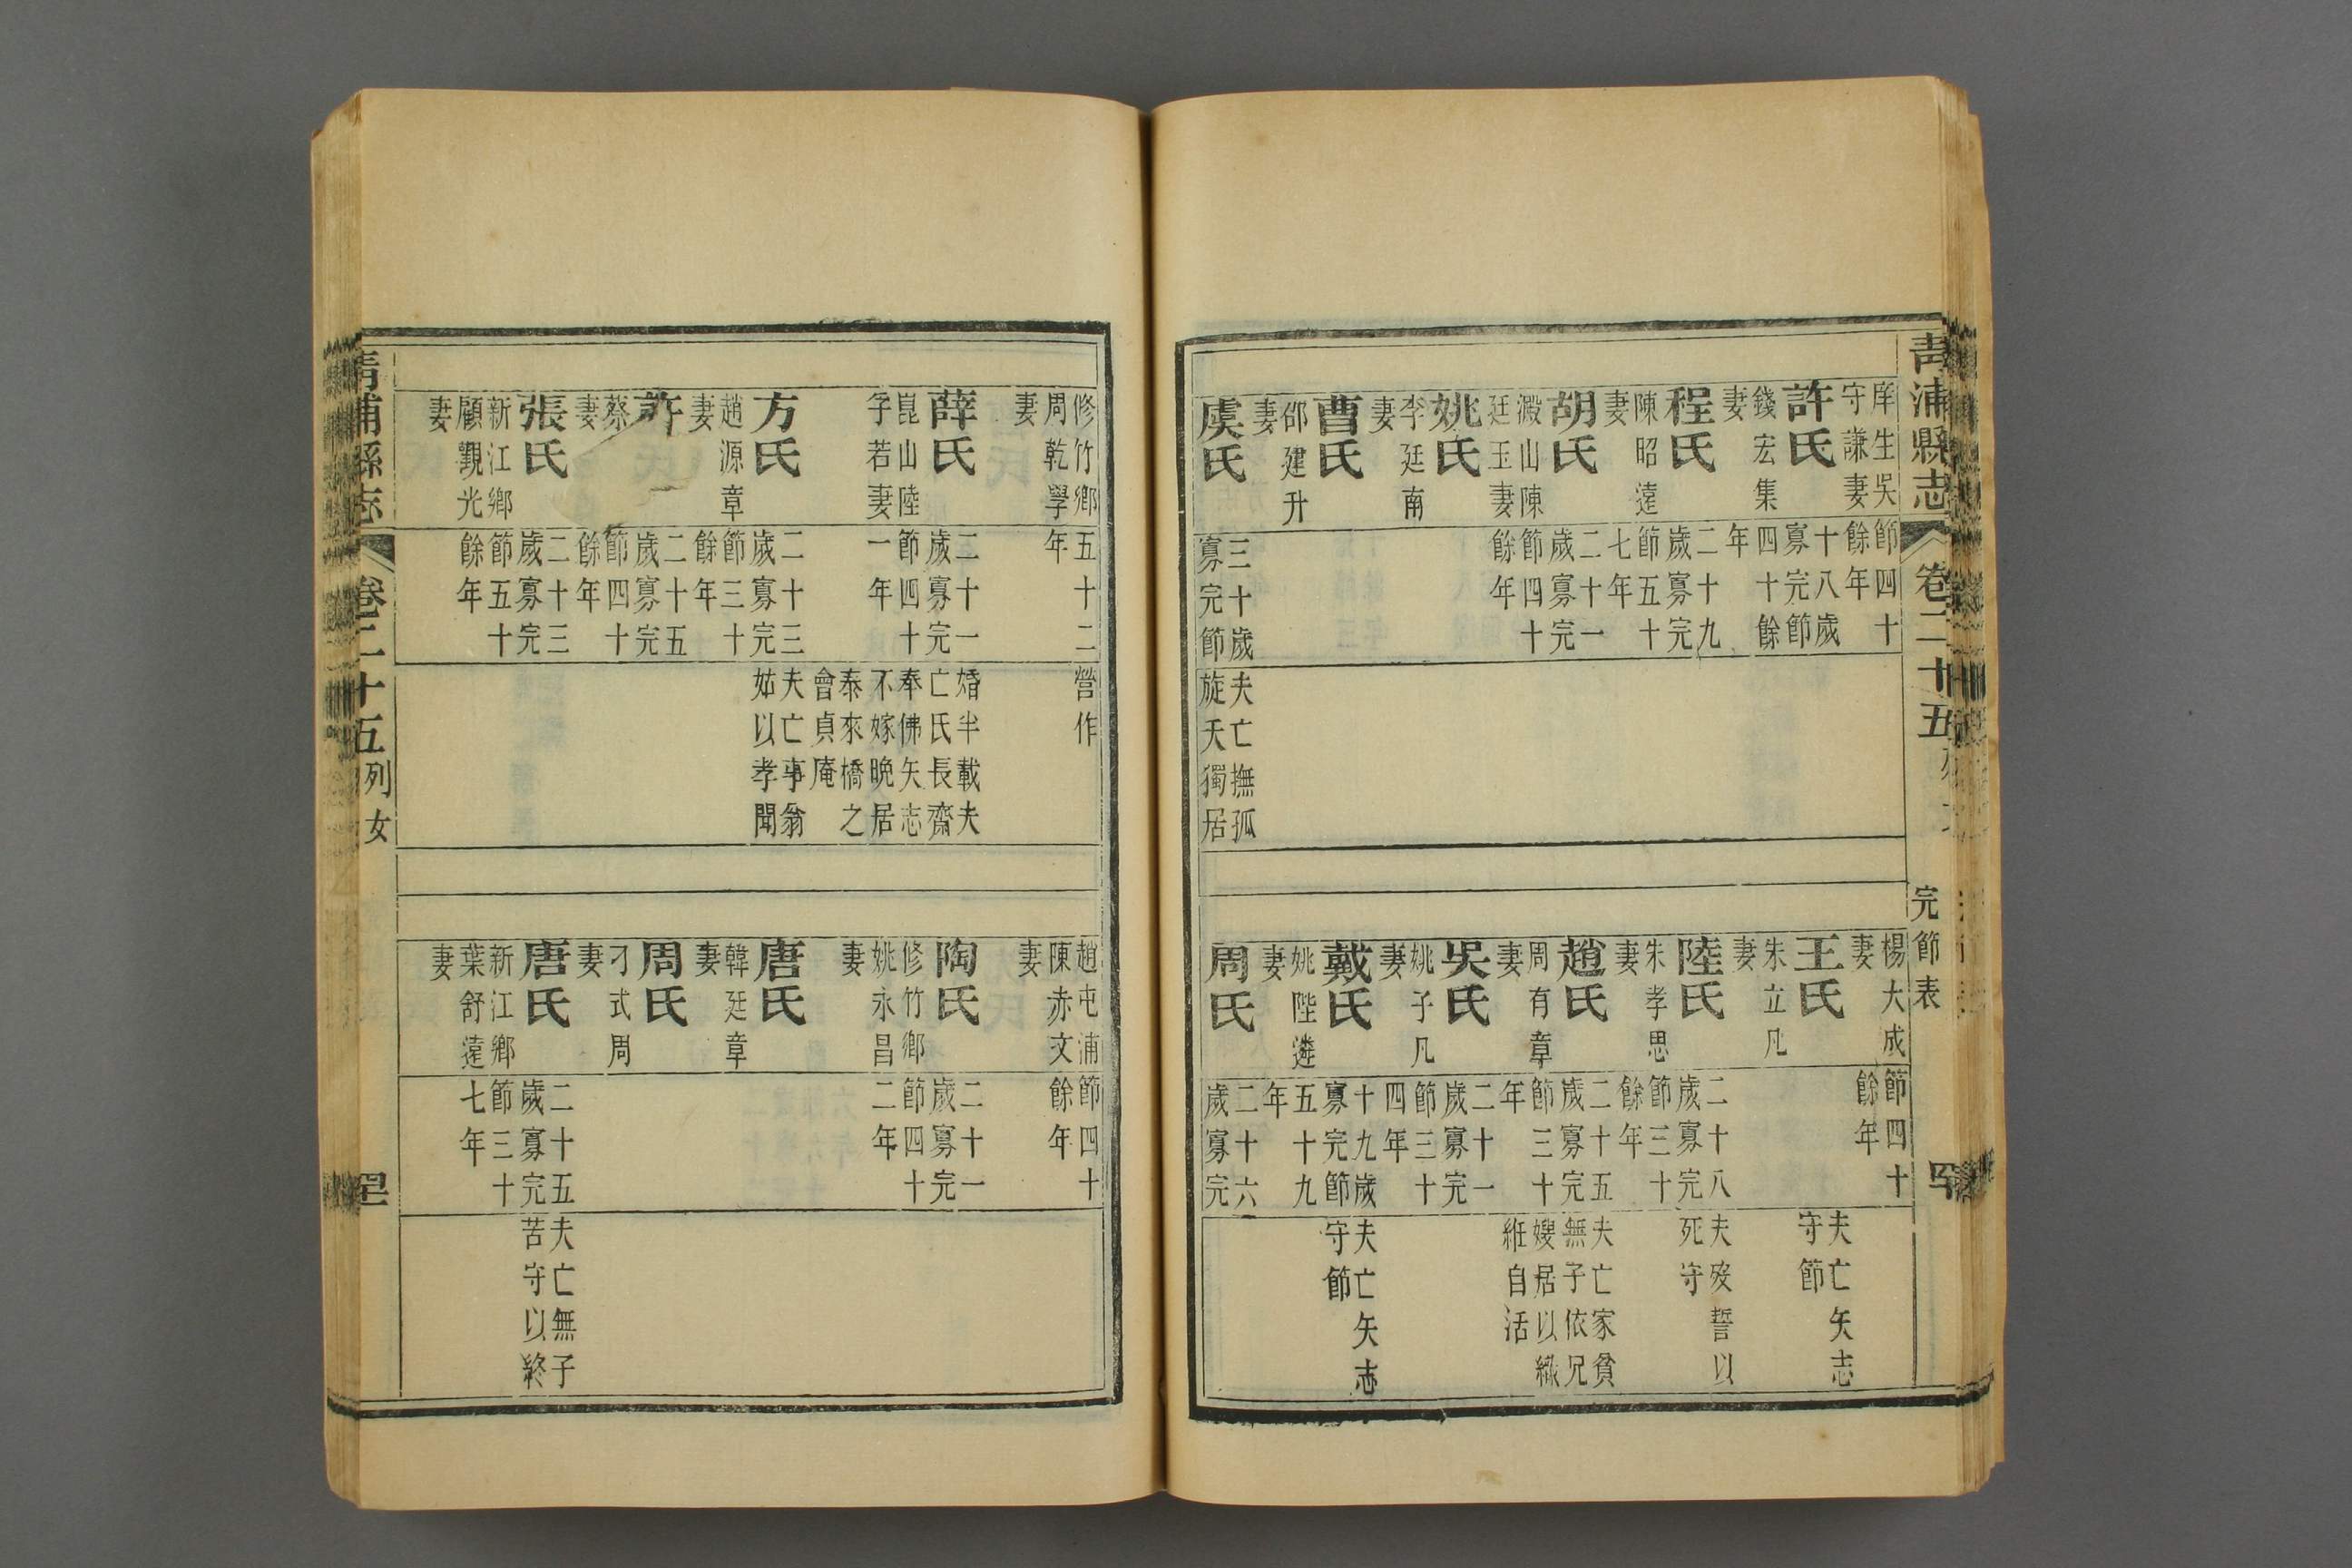 青浦縣志
卷二十五
完節表
庠生吳
守謙妻
許氏
錢宏集
妻
程氏
陳昭遠
妻
胡氏
澱山陳
廷玉妻
姚氏
李廷南
妻
曹氏
邵建升
妻
虞氏
節四十
餘年
十八歲
寡完節
四十餘
年
二十九
歲寡完
節五十
七年
二十一
歲寡完
節四十
餘年
三十歲
寡完節
夫亡撫孤
旋夭獨居
楊大成
妻
王氏
朱立凡
妻
陸氏
朱孝思
妻
趙氏
周有章
妻
吳氏
姚子凡
妻
戴氏
姚陛遴
妻
周氏
節四十
餘年
二十八
歲寡完
節三十
餘年
二十五
歲寡完
節三十
年
二十一
歲寡完
節三十
四年
十九歲
寡完節
五十九
年
二十六
歲寡完
夫亡矢志
守節
夫歿誓以
死守
夫亡家貧
無子依兄
嫂居以織
絍自活
夫亡矢志
守節
修竹鄉
周乾學
妻
薛氏
崑山陸
孚若妻
方氏
趙源章
妻
許
蔡
妻
張氏
新江鄉
顧觀光
妻
五十二
年
二十一
歲寡完
節四十
一年
二十三
歲寡完
節三十
餘年
二十五
歲寡完
節四十
餘年
二十三
歲寡完
節五十
餘年
營作
婚半載夫
亡氏長齋
奉佛矢志
不嫁晚居
泰來橋之
會貞庵
夫亡事翁
姑以孝聞
趙屯浦
陳赤文
妻
陶氏
修竹鄉
姚永昌
妻
唐氏
韓廷章
妻
周氏
刁式周
妻
唐氏
新江鄉
葉舒遠
妻
節四十
餘年
二十一
歲寡完
節四十
二年
二十五
歲寡完
節三十
七年
夫亡無子
苦守以終
青浦縣志
卷二十五
列女